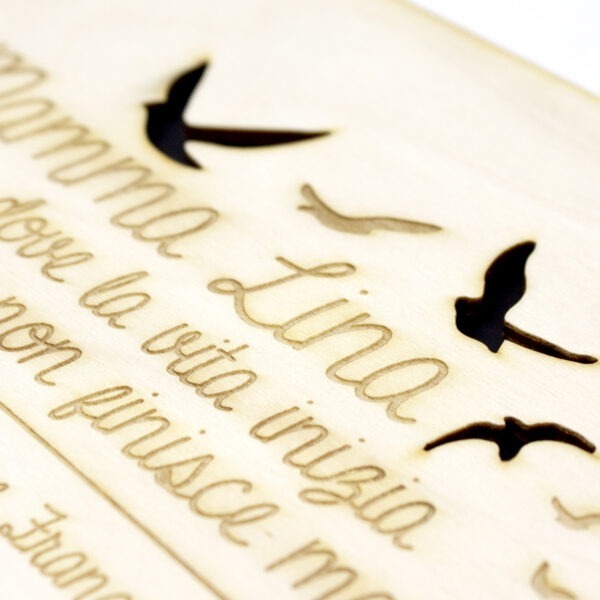 Mamma Lina
dove la vita inizia
non finisce